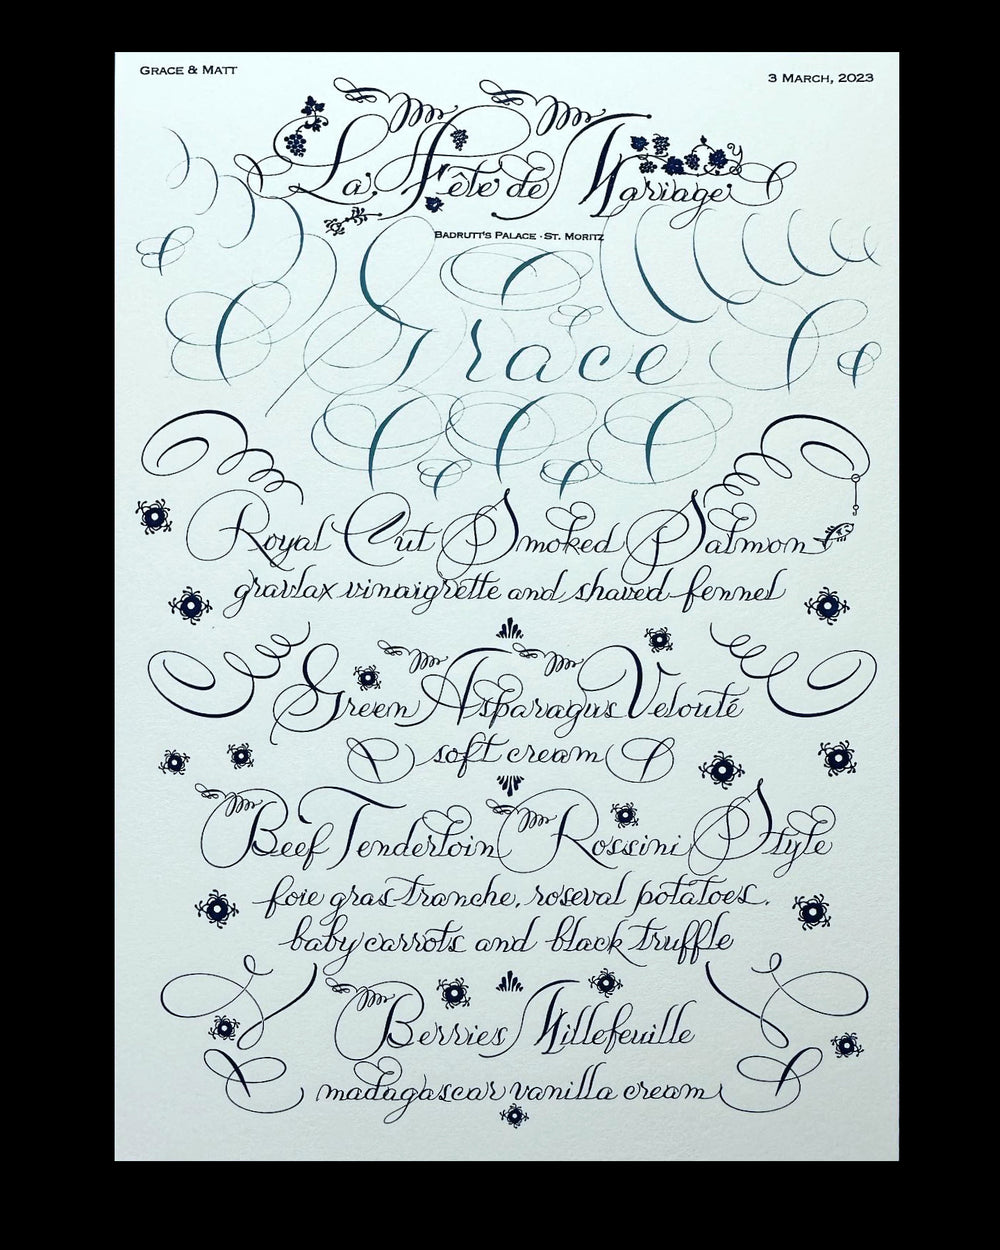 GRACE & MATT
3 MARCH, 2023
La Fête de Mariage
BADRUTT'S PALACE · ST. MORITZ
Grace
Royal Cut Smoked Salmon
gravlax vinaigrette and shaved fennel
Green Asparagus Velouté
soft cream
Beef Tenderloin Rossini Style
foie gras tranche, roseval potatoes,
baby carrots and black truffle
Berries Millefeuille
madagascar vanilla cream